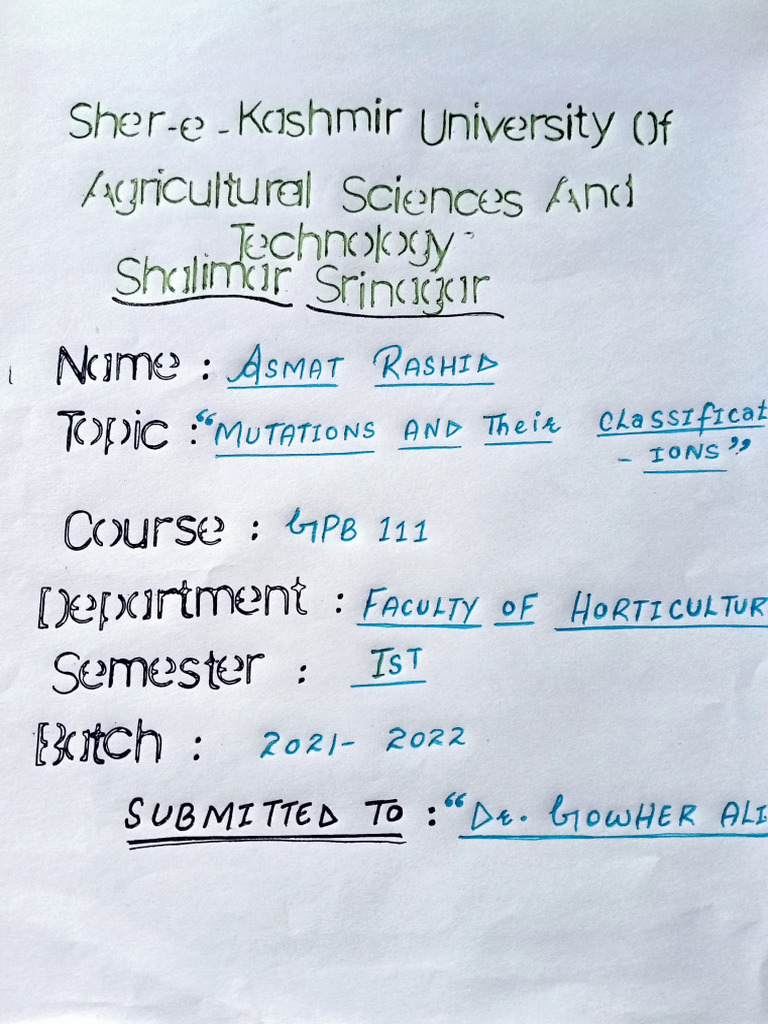 Sher-e-Kashmir University Of
Agricultural Sciences And
Technology
Shalimar Srinagar
Name : ASMAT RASHID
Topic : "MUTATIONS AND Their CLaSSIfiCat
- IONS"
Course : GPB 111
Department : FACULTY OF HORTICULTUR
Semester : IST
Batch : 2021- 2022
SUBMITTED TO : "DR. GOWHER ALI